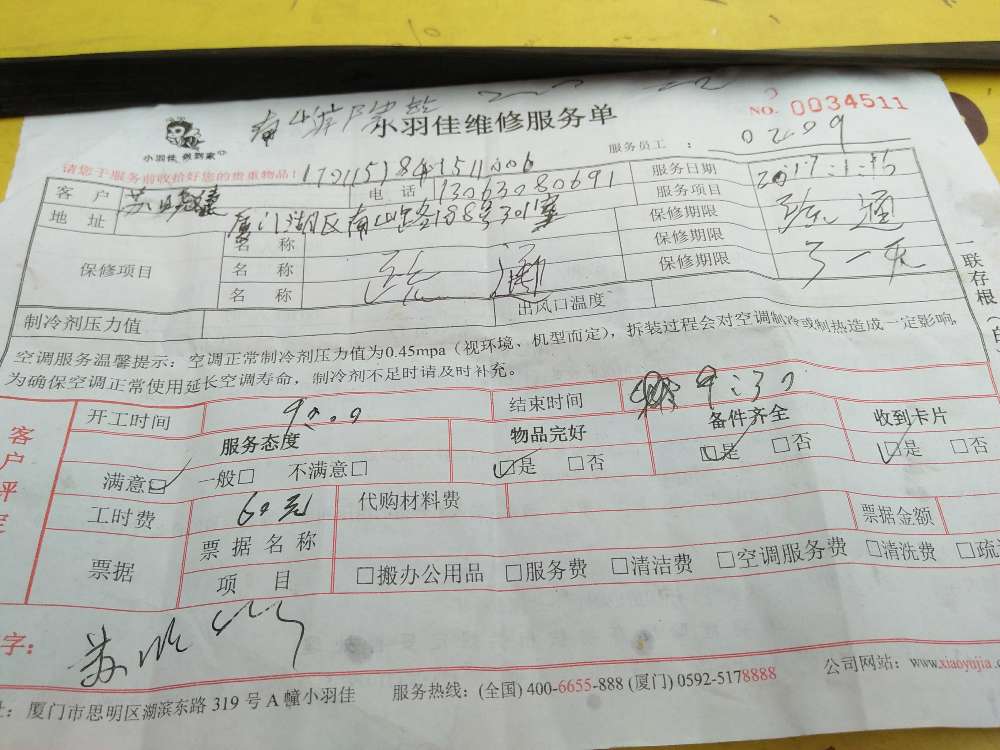 NO. 0034511
小羽佳维修服务单
小羽佳 做到家
服务员工: 0209
请您于服务前收拾好您的贵重物品!
客户 电话 13063080691 服务日期
地址 厦门湖区南山路188号301室 服务项目 疏通
保修项目 名称 疏通 保修期限
名称 保修期限
名称 保修期限
制冷剂压力值 出风口温度
空调服务温馨提示:空调正常制冷剂压力值为0.45mpa(视环境、机型而定),拆装过程会对空调制冷或制热造成一定影响,
为确保空调正常使用延长空调寿命,制冷剂不足时请及时补充。
开工时间 9:00 结束时间 9:30
服务态度 物品完好 备件齐全 收到卡片
满意□ 一般□ 不满意□ □是 □否 □是 □否 □是 □否
工时费 60元 代购材料费
票据 票据名称 票据金额
项目 □搬办公用品 □服务费 □清洁费 □空调服务费 □清洗费 □疏
字:
址:厦门市思明区湖滨东路 319 号 A 幢小羽佳 服务热线:(全国) 400-6655-888 (厦门) 0592-5178888 公司网站:www.xiaoyujia.c
客户评定
一联存根(白